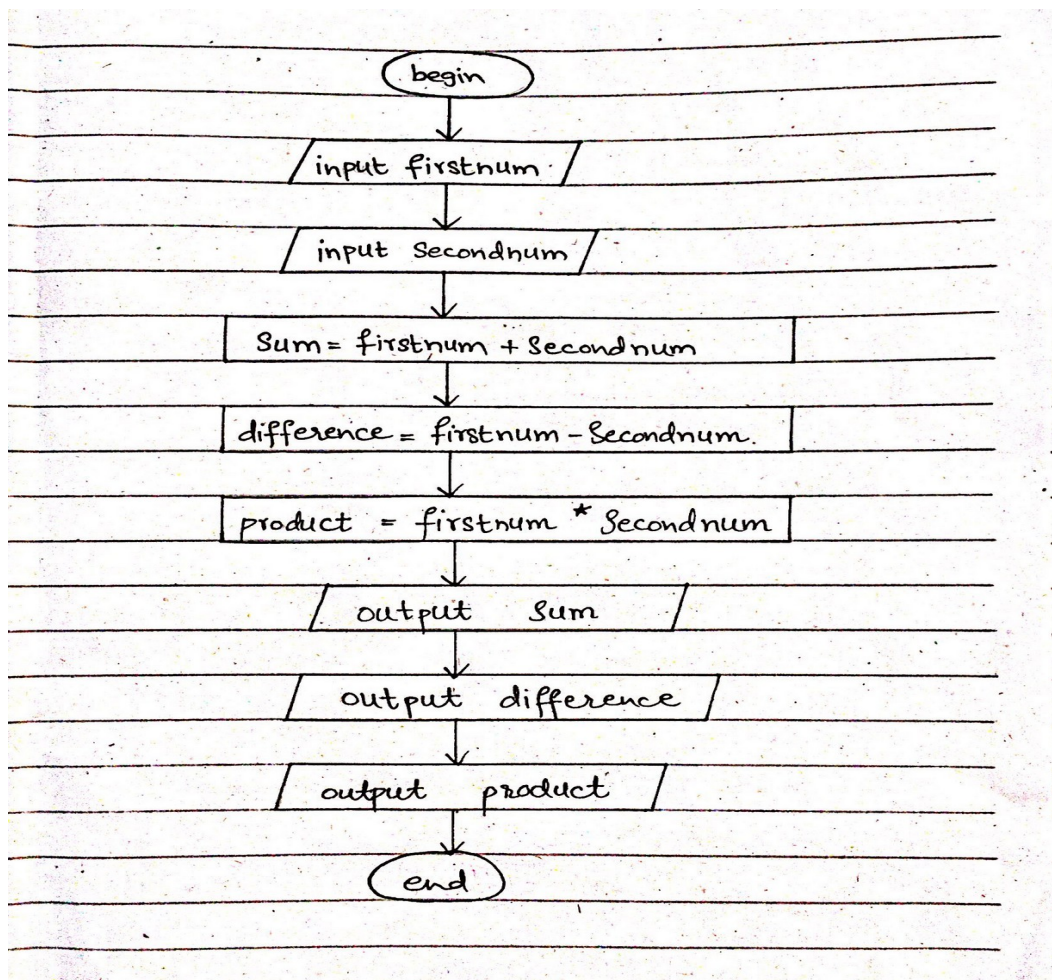 begin
input firstnum
input Secondnum
Sum = firstnum + Secondnum
difference = firstnum - Secondnum.
product = firstnum * Secondnum
output Sum
output difference
output product
end